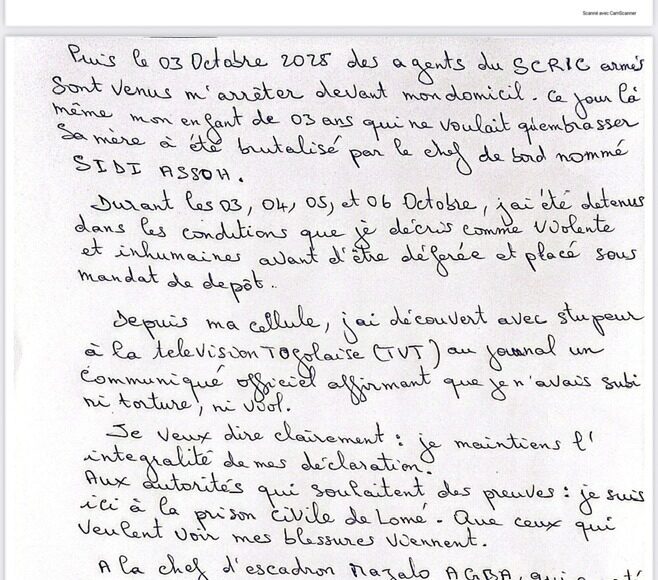 Scanné avec CamScanner
Puis le 03 Octobre 2025 des agents du SCRIC armés
sont venus m'arrêter devant mon domicil. Ce jour là
même mon enfant de 03 ans qui ne voulait qu'embrasser
sa mère à été brutalisé par le chef de bord nommé
SIDI ASSOH.
Durant les 03, 04, 05, et 06 Octobre, j'ai été detenus
dans les conditions que je décris comme violente
et inhumaines avant d'être déferée et placé sous
mandat de depôt.
Depuis ma cellule, j'ai découvert avec stupeur
à la télévision TOgolaise (TVT) au journal un
Communiqué officiel affirmant que je n'avais subi
ni torture, ni viol.
Je veux dire clairement : je maintiens l'
intégralité de mes déclaration.
Aux autorités qui souaitent des preuves : je suis
ici à la prison civile de Lomé. Que ceux qui
veulent voir mes blessures viennent.
A la chef d'escadron AGBA, qui